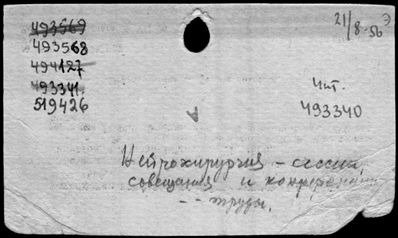 493569
493568
494127
493341.
519426
21/8-56 Э
Чит.
493340
Нейрохирургия - сессии,
совещания и конференции
-- труды.